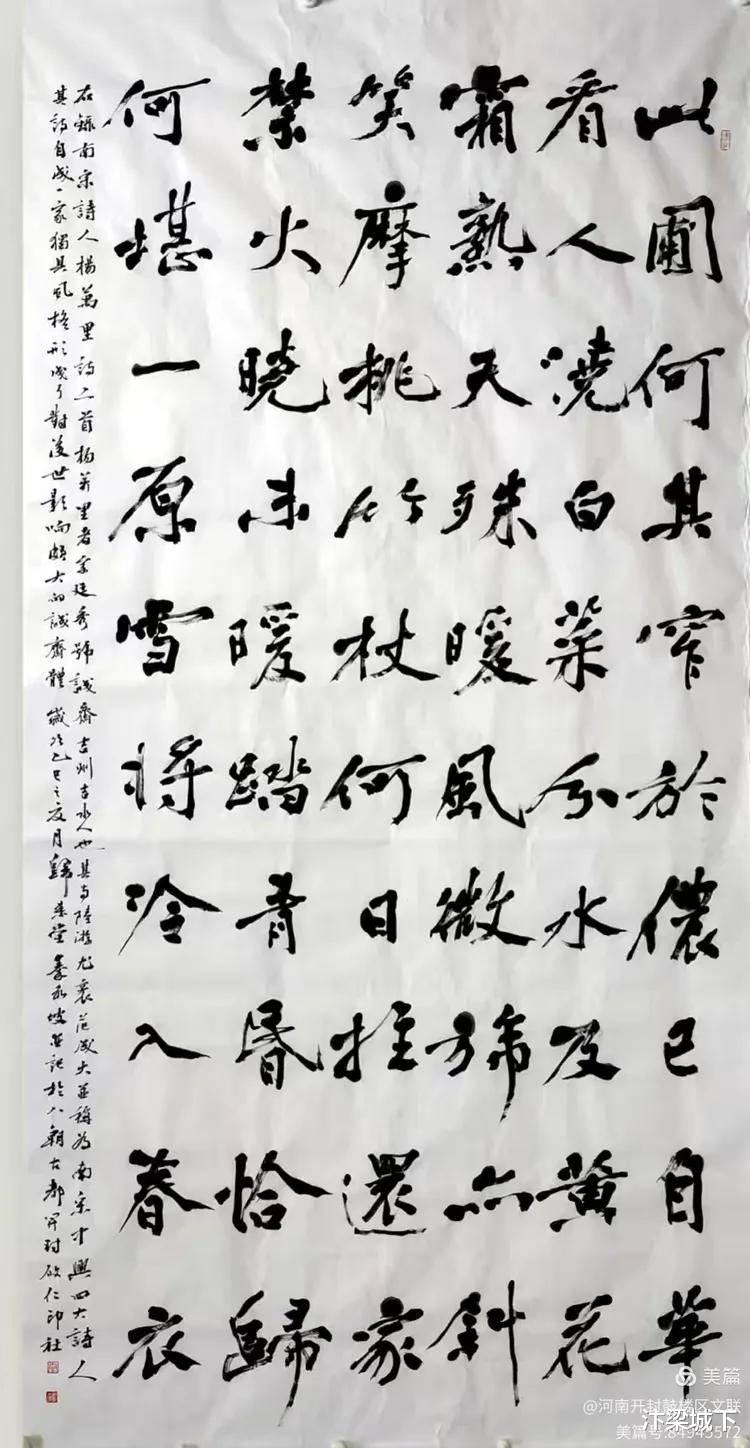 此圃何其窄於儂已自華
看人澆白菜分水及黄花
霜熟天殊暖風微旆亦斜
笑摩桃竹杖何日拄還家
禁火曉未暖踏青昏恰歸
何堪一原雪將冷入春衣
右録南宋詩人楊萬里詩二首楊萬里者字廷秀號誠齋吉州吉水人也其與陸游尤袤范成大並稱為南宋中興四大詩人
其詩自成一家獨具風格形成了對後世影响頗大的誠齋體 歲次乙巳之夏月歸 堂 永坡並記於八朝古都開封 仁印社
美篇
@河南开封鼓楼区文联
汴梁城下
美篇号:84945572